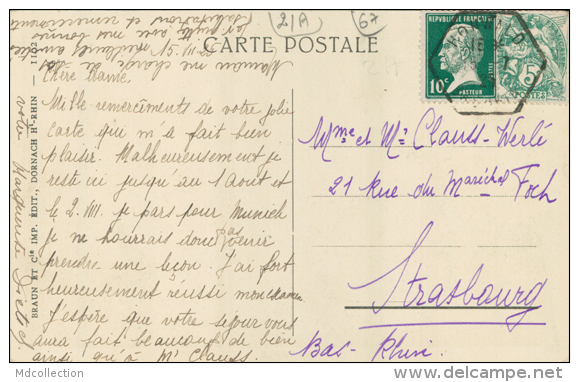 21A
67
CARTE POSTALE
RÉPUBLIQUE FRANÇAISE
10c
PASTEUR
5
POSTES
15.VII.
Maman me charge de
Chère Dame,
Mille remerciments de votre jolie
carte qui m'a fait bien
plaisir. Malheureusement je
reste ici jusqu'au 1 Août et
le 2.VIII. je pars pour Munich
je ne pourrais donc pas venir
prendre une leçon. J'ai fort
heureusement réussi mon examen
J'espère que votre séjour vous
aura fait beaucoup de bien
ainsi qu'à Mr Clauss.
votre Marguerite
BRAUN ET Cie IMP. ÉDIT., DORNACH Ht-RHIN
Mme et Mr Clauss-Werlé
21 Rue du Maréchal Foch
Strasbourg
Bas-Rhin
Mdcollection
delcampe.net